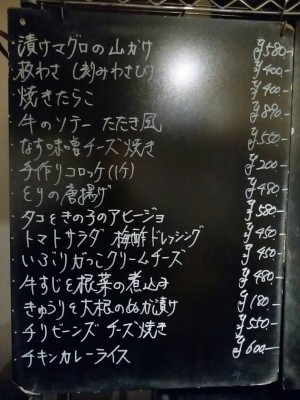 漬けマグロの山かけ ¥580-
板わさ(刻みわさび) ¥400-
焼きたらこ ¥400-
牛のソテー たたき風 ¥890-
なす味噌チーズ焼き ¥550-
手作りコロッケ(1ケ) ¥200-
とりの唐揚げ ¥480-
タコときの子のアヒージョ ¥580-
トマトサラダ 梅酢ドレッシング ¥450-
いぶりがっこクリームチーズ ¥450-
牛すじと根菜の煮込み ¥480-
きゅうりと大根のぬか漬け ¥180-
チリビーンズ チーズ焼き ¥550-
チキンカレーライス ¥600-